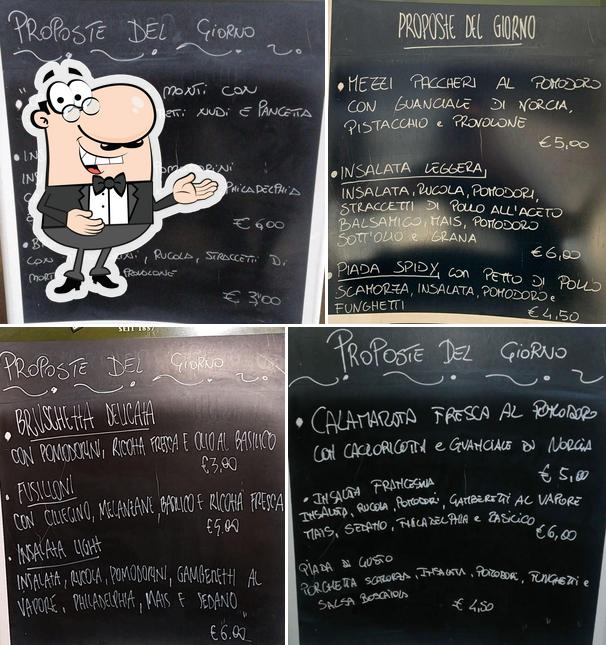 PROPOSTE DEL GIORNO
MONTI CON
NUDI E PANCETTA
IN
POMODORINI
PHILADELPHIA
€ 6,00
CON RUCOLA, STRACCETTI DI
PROVOLONE
€ 3,00
PROPOSTE DEL GIORNO
• MEZZI PACCHERI AL POMODORO
CON GUANCIALE DI NORCIA,
PISTACCHIO e PROVOLONE
€ 5,00
• INSALATA LEGGERA
INSALATA, RUCOLA, POMODORI,
STRACCETTI DI POLLO ALL'ACETO
BALSAMICO, MAIS, POMODORO
SOTT'OLIO e GRANA
€ 6,00
• PIADA SPIDY con PETTO DI POLLO
SCAMORZA, INSALATA, POMODORO e
FUNGHETTI
€ 4,50
PROPOSTE DEL GIORNO
• BRUSCHETTA DELICATA
CON POMODORINI, RICOTTA FRESCA E OLIO AL BASILICO
€3,00
• FUSILLONI
CON CILIEGINO, MELANZANE, BASILICO E RICOTTA FRESCA
€5,00
• INSALATA LIGHT
INSALATA, RUCOLA, POMODORINI, GAMBERETTI AL
VAPORE, PHILADELPHIA, MAIS E SEDANO
€6.00
PROPOSTE DEL GIORNO
• CALAMARATA FRESCA AL POMODORO
CON CACIORICOTTA e GUANCIALE DI NORCIA
€ 5,00
• INSALTA FRANCESINA
INSALATA, RUCOLA, POMODORI, GAMBERETTI AL VAPORE
MAIS, SEDANO, PHILADELPHIA e BASILICO
€6,00
PIADA DI GUSTO
PORCHETTA SCAMORZA, INSALATA, POMODORI, FUNGHETTI e
SALSA BOSCAIOLA
€ 4,50